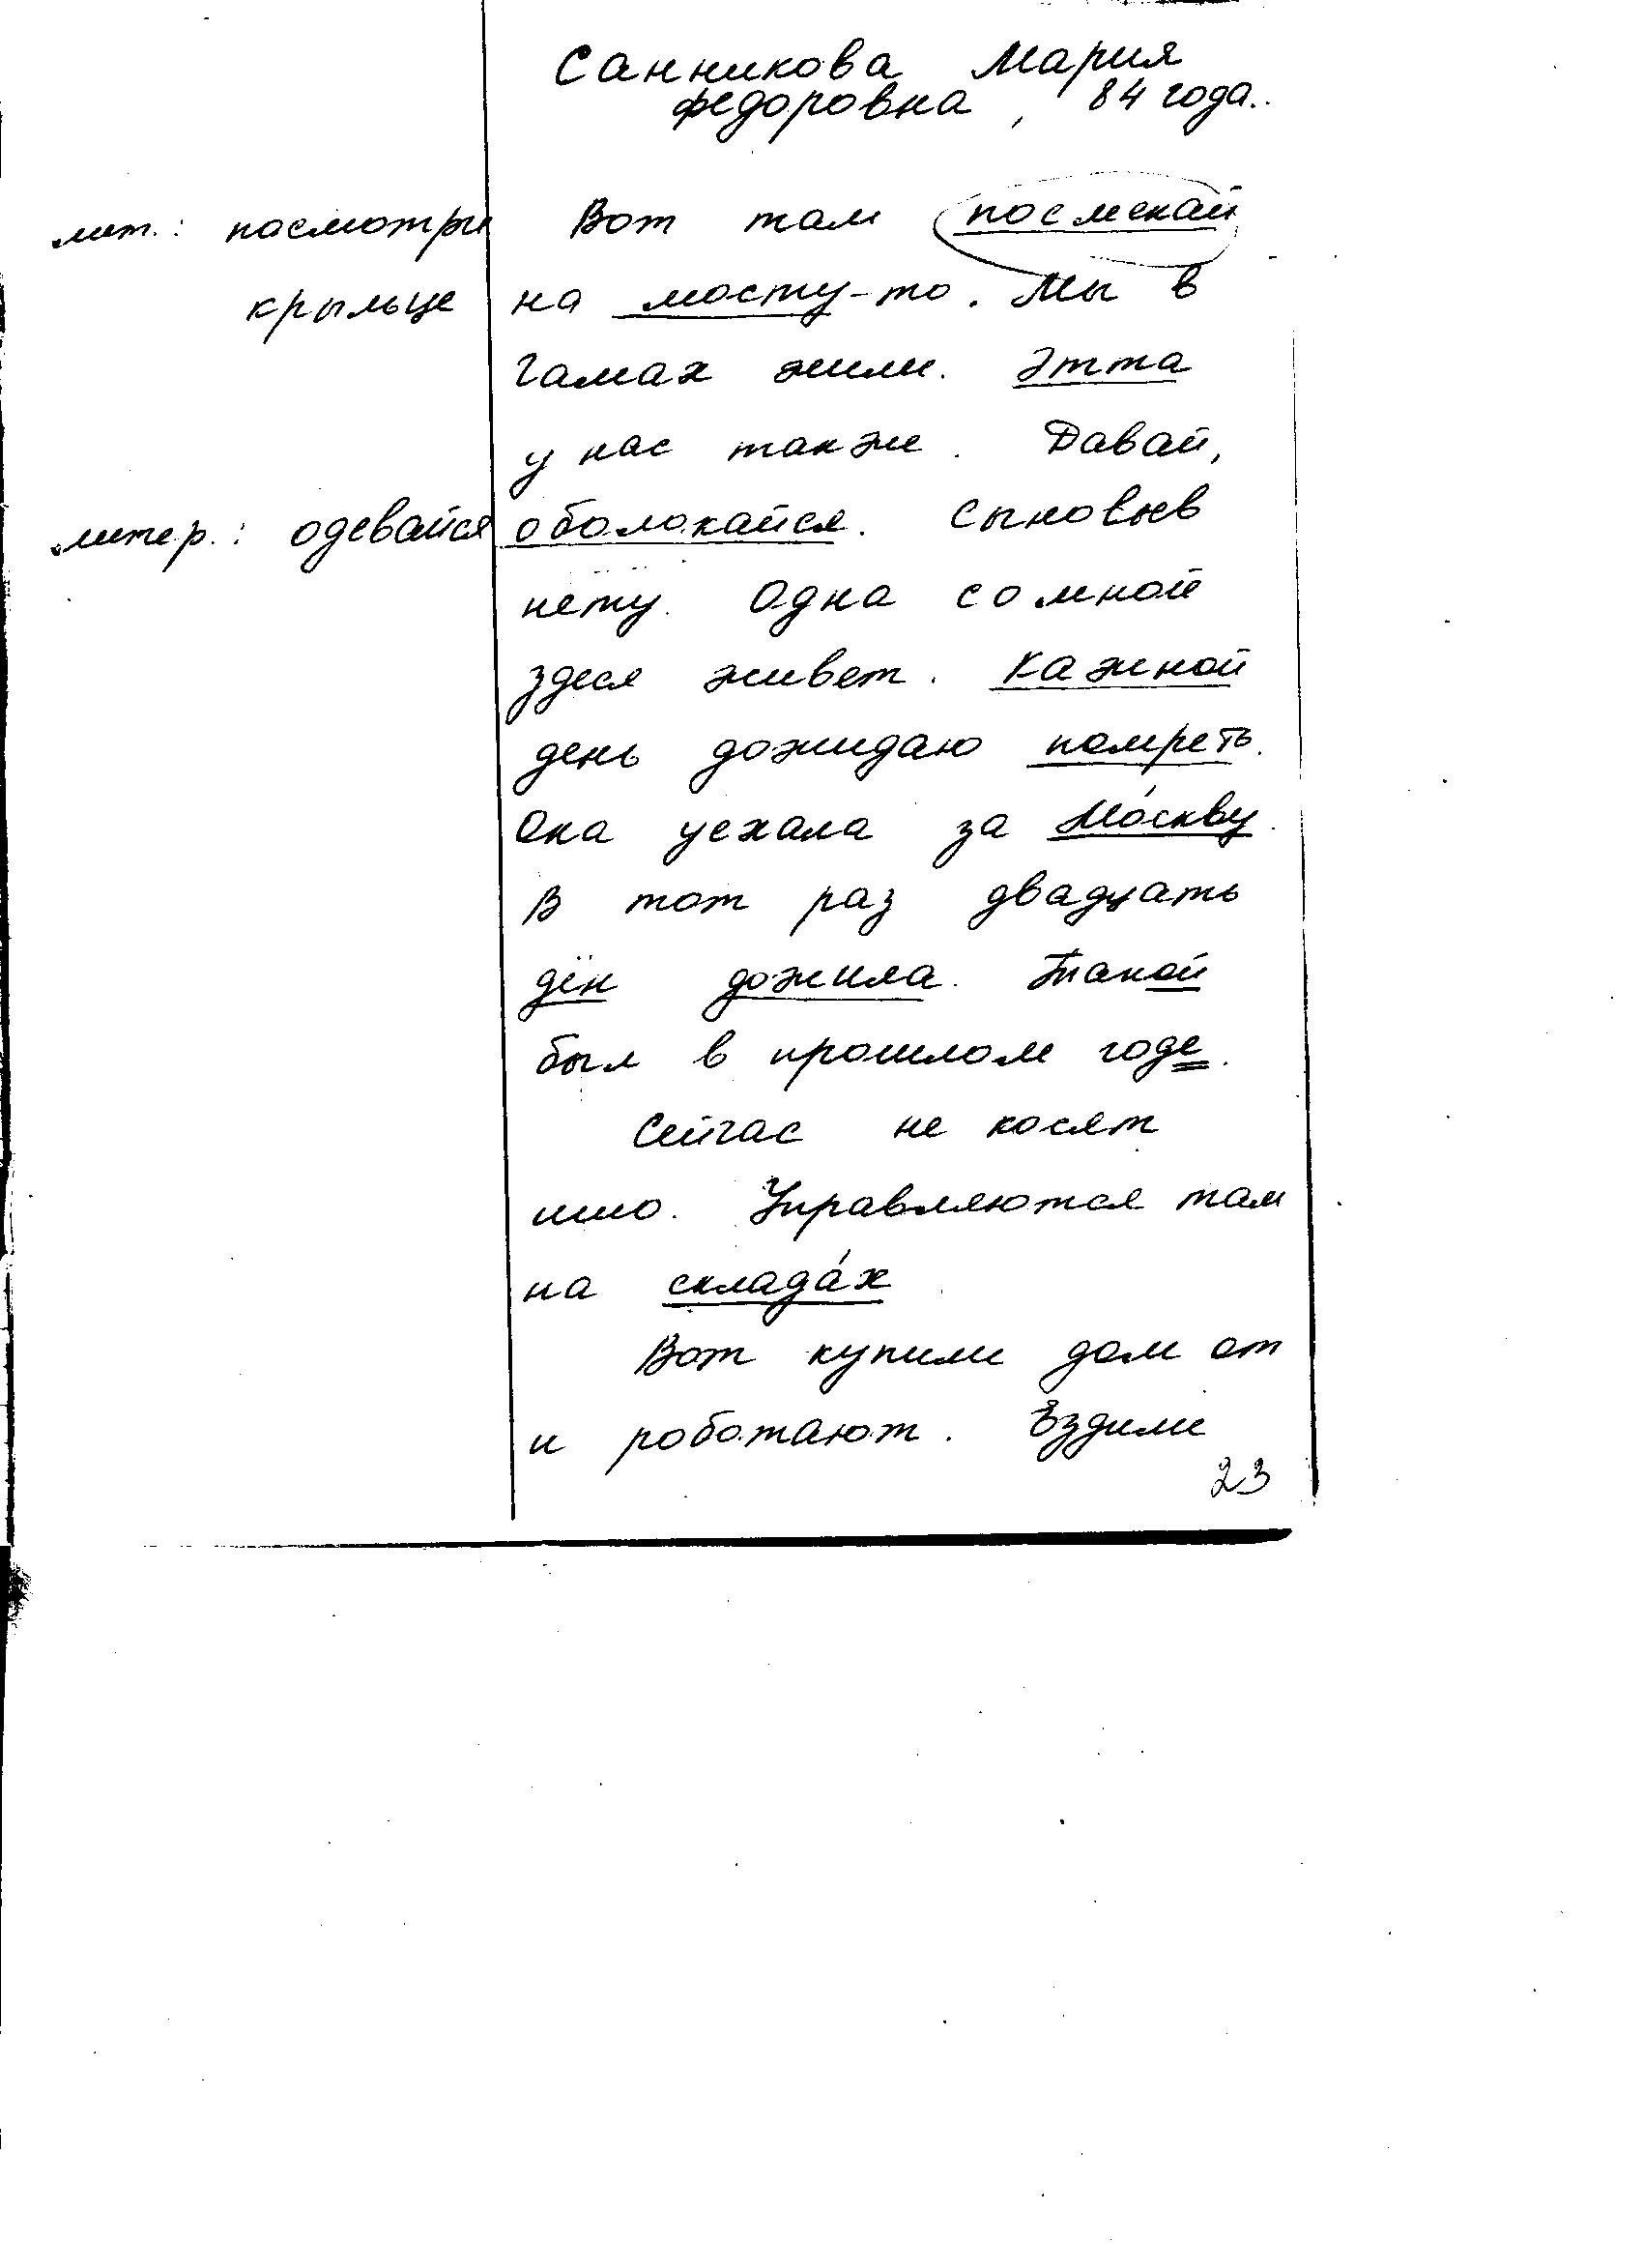 Санникова Мария
Федоровна, 84 года..
лит.: посмотри Вот там посмекай
крыльце на мосту-то. Мы в
Гамах жили. Этта
у нас также. Давай,
литер.: одевайся оболокайся. Сыновьев
нету. Одна со мной
здеся живет. Кажной
день дожидаю помреть.
Она уехала за Мо́скву.
В тот раз двадцать
дён дожила. Такой
был в прошлом годе.
Сейчас не косят
ишо. Управляются там
на склада́х
Вот купили дом от
и роботают. Ездили
23